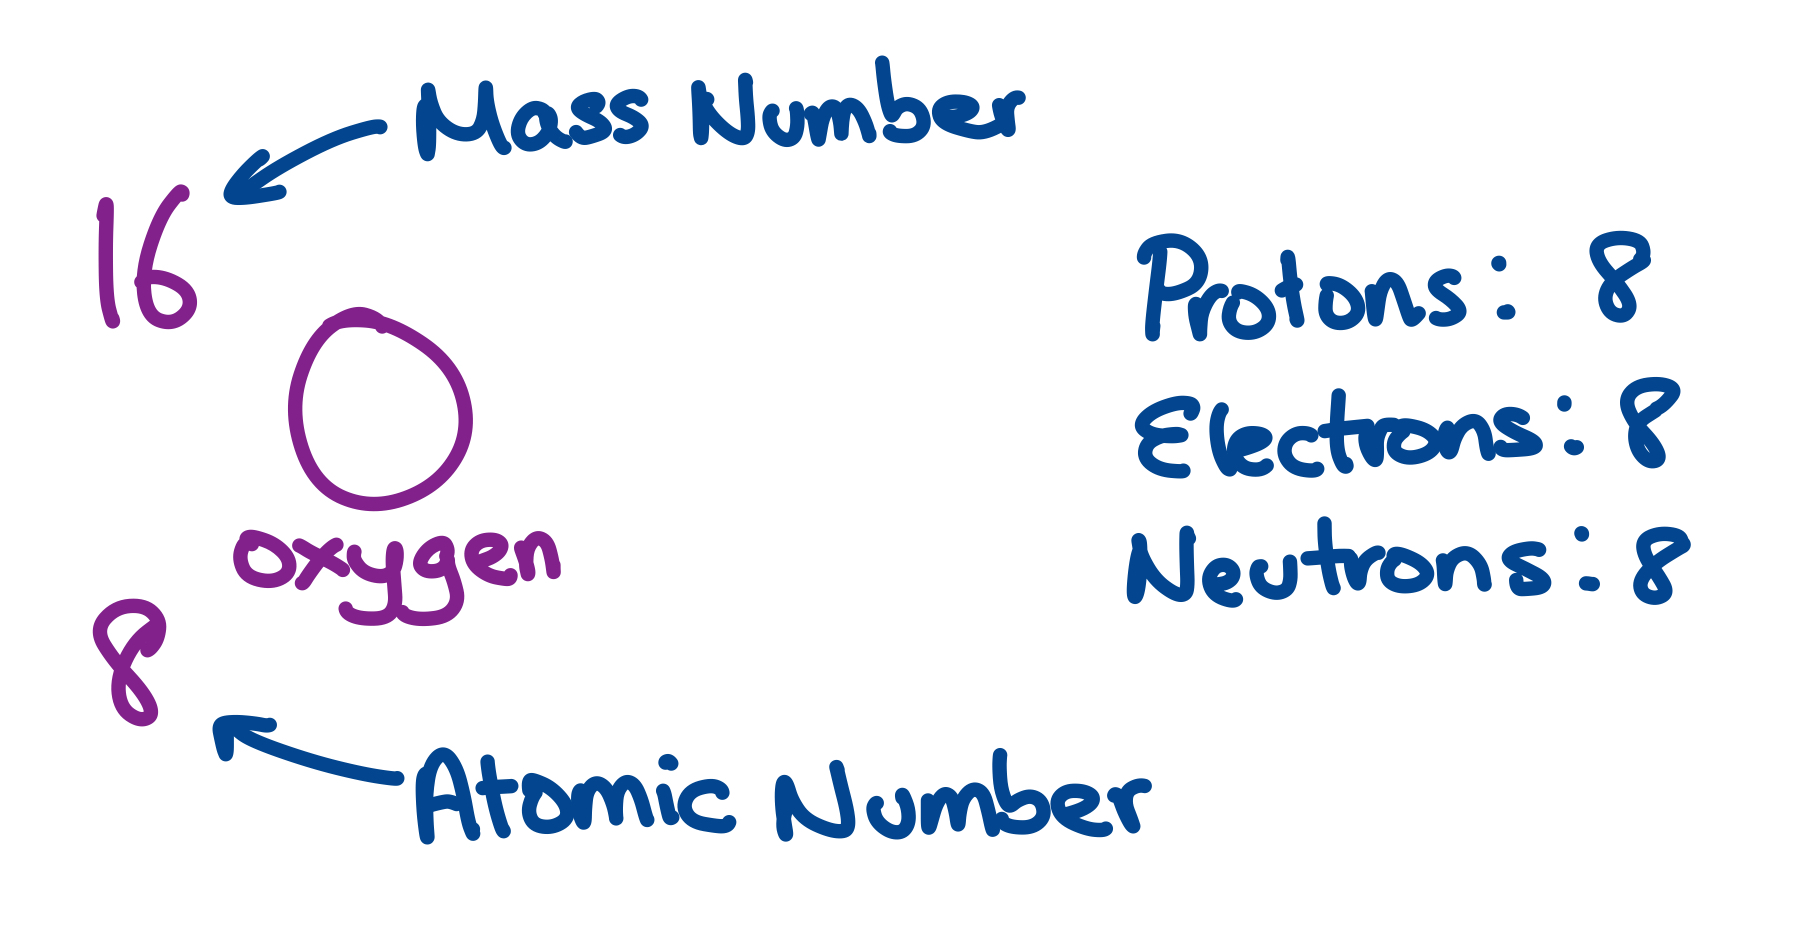 Mass Number
16
O
oxygen
8
Atomic Number
Protons: 8
Electrons: 8
Neutrons: 8